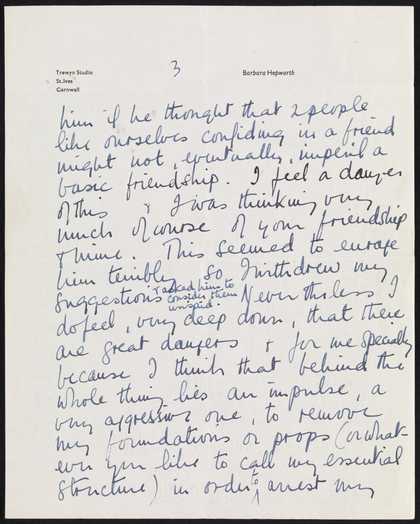 Trewyn Studio
St. Ives
Cornwall
3
Barbara Hepworth
him if he thought that 2 people
like ourselves confiding in a friend
might not, eventually, imperil a
basic friendship. I feel a danger
of this & I was thinking very
much of course of your friendship
& mine. This seemed to enrage
him terribly so I withdrew my
suggestions & asked him to
consider them
unsaid. Nevertheless I
do feel, very deep down, that there
are great dangers & for me specially
because I think that behind the
whole thing lies an impulse, a
very aggressive one, to remove
my foundations or props (or what-
ever you like to call my essential
structure) in order to arrest my